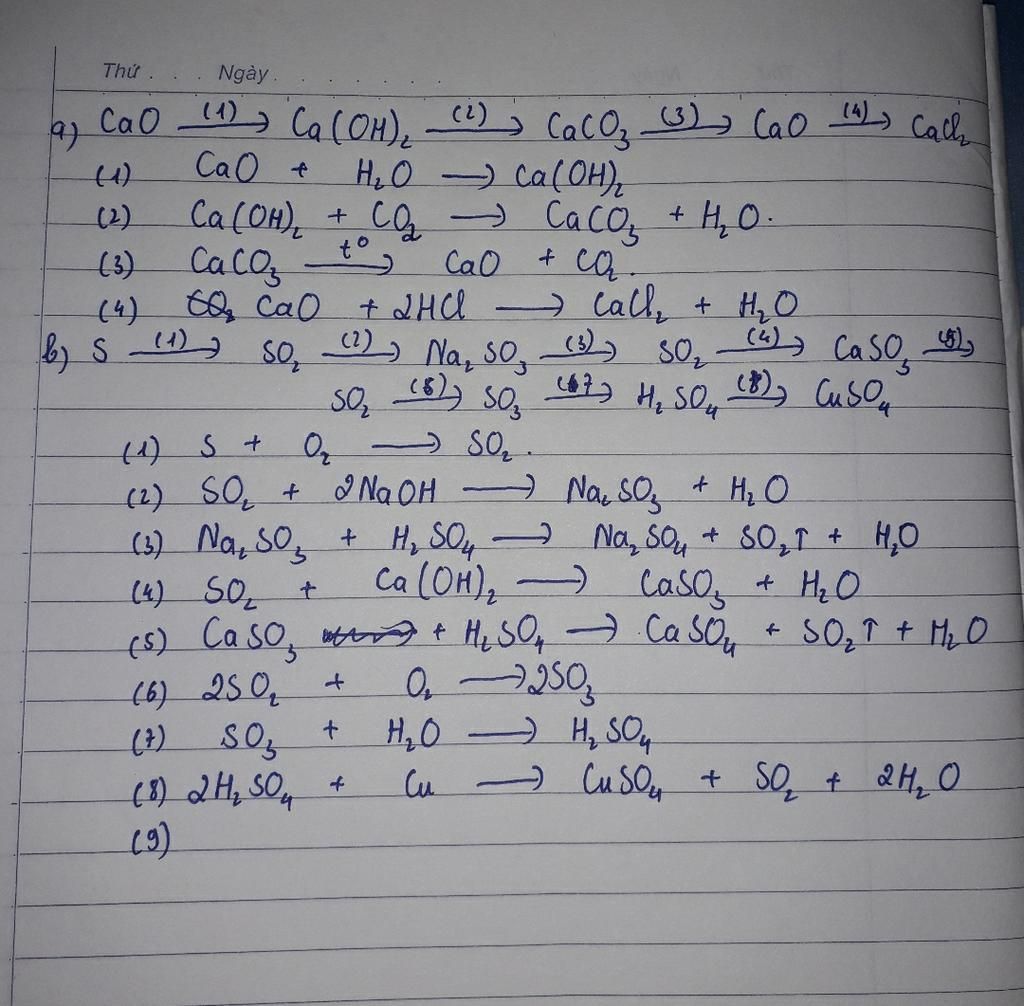 Thứ . . . Ngày . . . . . . .
a) CaO (1)→ Ca(OH)₂ (2)→ CaCO₃ (3)→ CaO (4)→ CaCl₂
(1) CaO + H₂O → Ca(OH)₂
(2) Ca(OH)₂ + CO₂ → CaCO₃ + H₂O.
(3) CaCO₃ t°→ CaO + CO₂.
(4) CaO + 2HCl → CaCl₂ + H₂O
b) S (1)→ SO₂ (2)→ Na₂SO₃ (3)→ SO₂ (4)→ CaSO₃ (5)→
SO₂ (6)→ SO₃ (7→ H₂SO₄ (8)→ CuSO₄
(1) S + O₂ → SO₂.
(2) SO₂ + 2NaOH → Na₂SO₃ + H₂O
(3) Na₂SO₃ + H₂SO₄ → Na₂SO₄ + SO₂↑ + H₂O
(4) SO₂ + Ca(OH)₂ → CaSO₃ + H₂O
(5) CaSO₃ + H₂SO₄ → CaSO₄ + SO₂↑ + H₂O
(6) 2SO₂ + O₂ → 2SO₃
(7) SO₃ + H₂O → H₂SO₄
(8) 2H₂SO₄ + Cu → CuSO₄ + SO₂ + 2H₂O
(9)